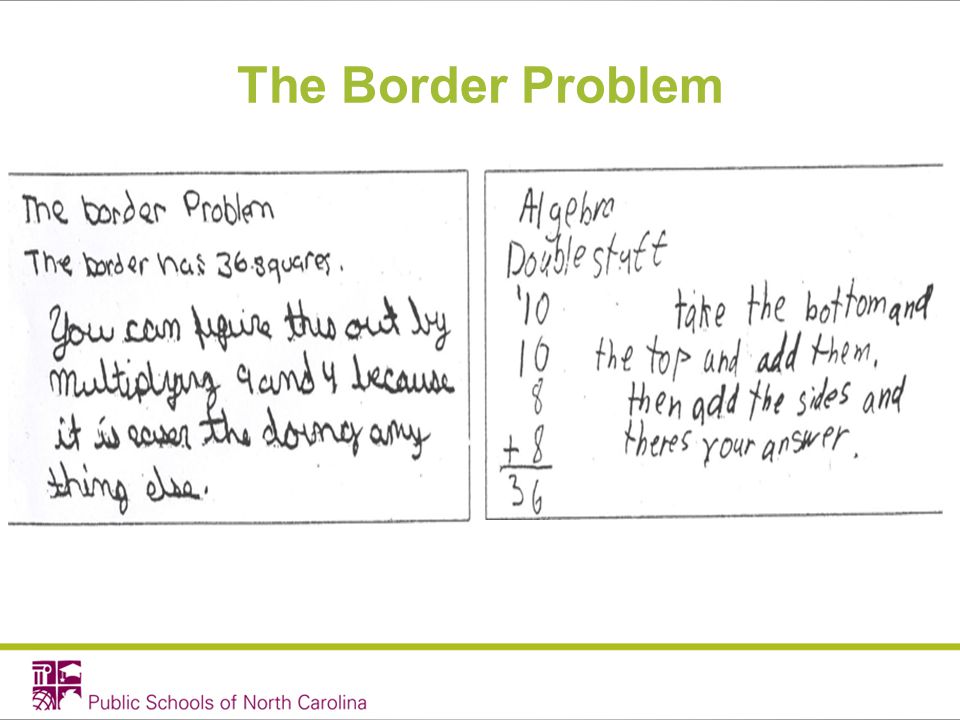 The Border Problem
The border Problem
The border has 36 squares.
You can figure this out by
multiplying 9 and 4 because
it is easer the doing any
thing else.
Algebra
Double stuff
10
10
8
+ 8
36
take the bottom and
the top and add them.
then add the sides and
theres your answer.
Public Schools of North Carolina